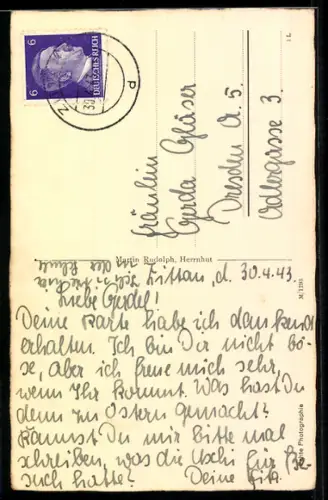 6 DEUTSCHES REICH 6
Fräulein
Gerda Gläser
Dresden A. 5
Adlergasse 3.
Martin Rudolph, Herrnhut
Zittau, d. 30.4.43.
Liebe Gerdel!
Deine Karte habe ich dankend
erhalten. Ich bin Dir nicht bö-
se, aber ich freue mich sehr,
wenn Ihr kommt. Was hast Du
denn zu Ostern gemacht?
Kannst Du mir bitte mal
schreiben, was die Uschi für Be-
such hatte? Deine